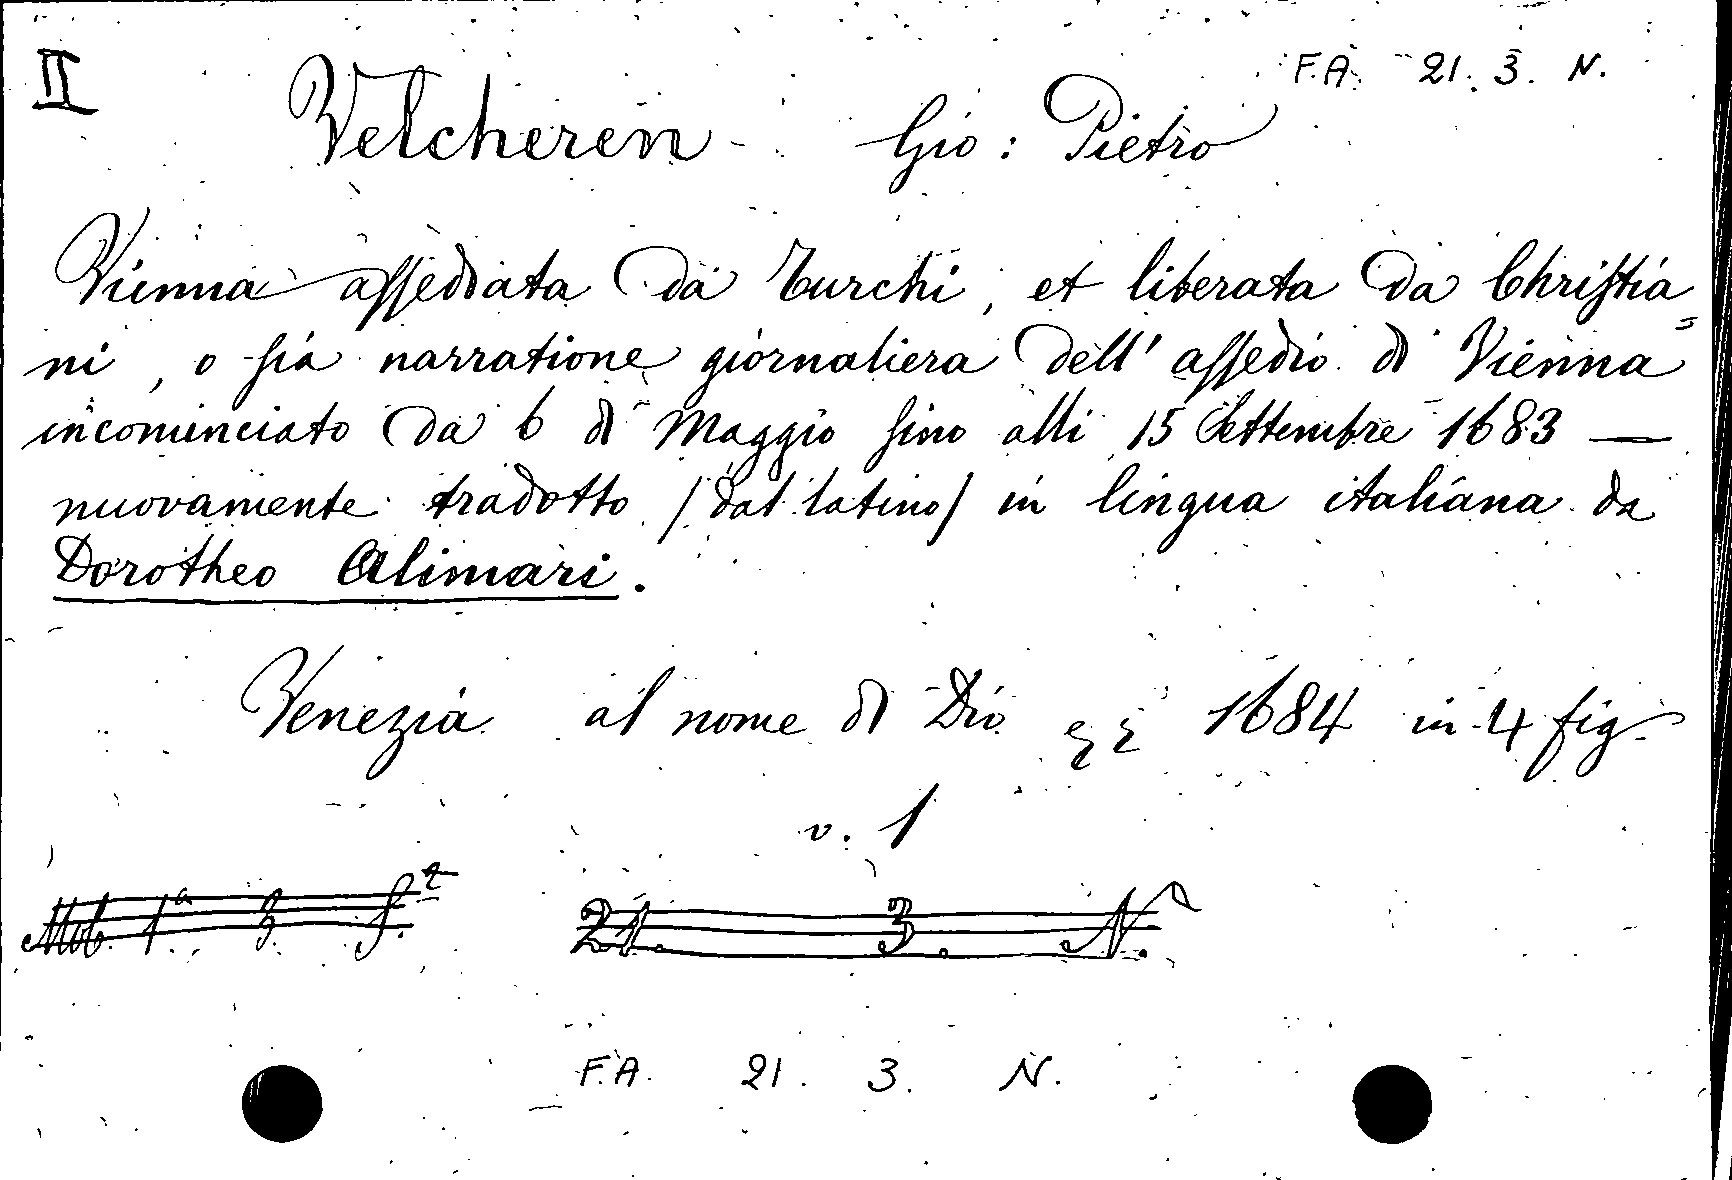 II
F.A. 21. 3. N.
Velcheren Gio: Pietro
Vienna assediata da Turchi, et liberata da Christia=
ni, o sia narratione giornaliera dell' assedio di Vienna
incominciato da 6 di Maggio sino alli 15 Settembre 1683 —
nuovamente tradotto /dal latino/ in lingua italiana da
Dorotheo Alimari.
Venezia al nome di Dio 1684 in 4 fig.
v. 1
21. 3. N.
F.A. 21. 3. N.